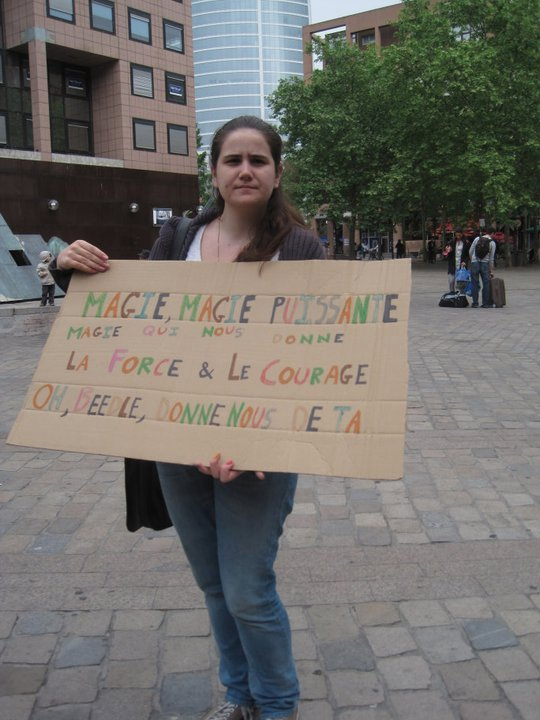 MAGIE, MAGIE PUISSANTE
MAGIE QUI NOUS DONNE
LA FORCE & LE COURAGE
OH, BEEDLE, DONNE NOUS DE TA